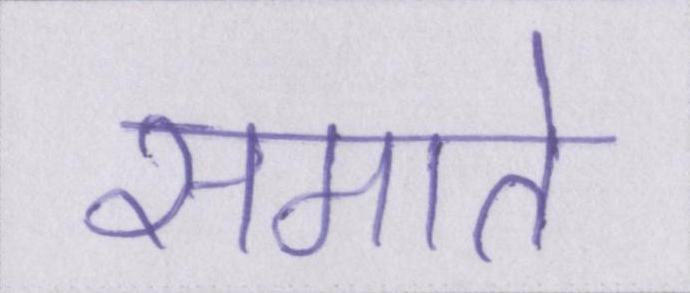 समाते